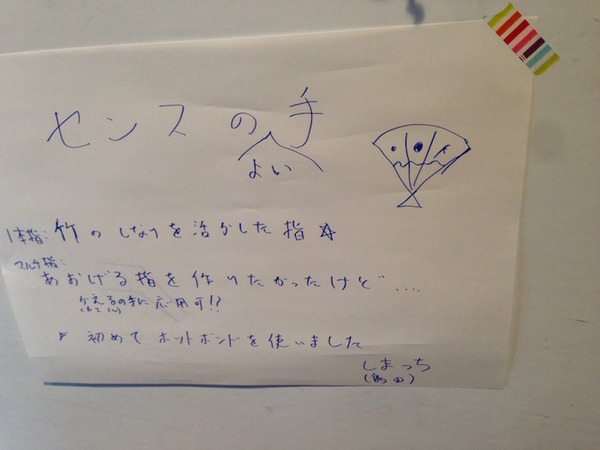 センスの手
よい
1本指: 竹のしなりを活かした指☆
マルチ指:
あおげる指を作りたかったけど....
かえるの手に応用可!?
初めてホットボンドを使いました
しまっち
(島田)